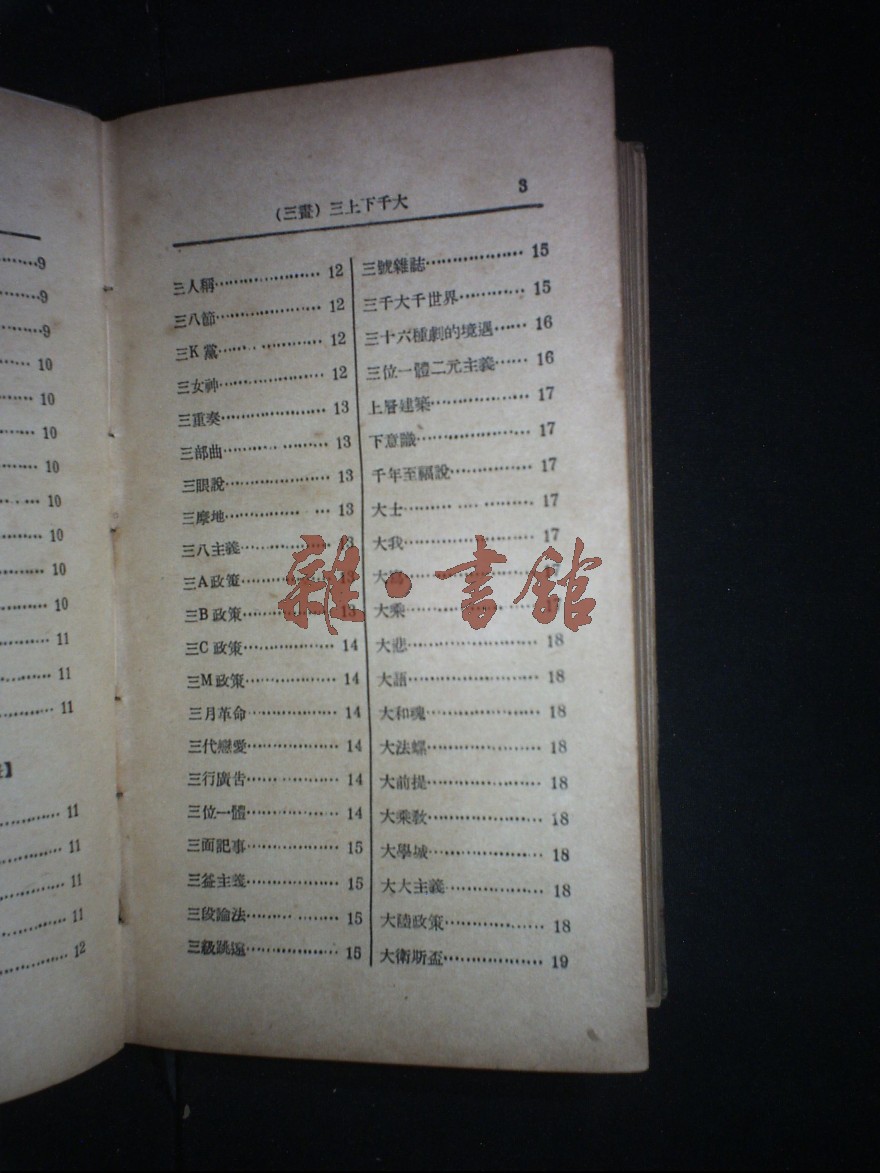 3
(三畫) 三上下千大
三人稱 12
三八節 12
三K黨 12
三女神 12
三重奏 13
三部曲 13
三眼說 13
三摩地 13
三八主義 13
三A政策 13
三B政策 13
三C政策 14
三M政策 14
三月革命 14
三代戀愛 14
三行廣告 14
三位一體 14
三面記事 15
三益主義 15
三段論法 15
三級跳遠 15
三號雜誌 15
三千大千世界 15
三十六種劇的境遇 16
三位一體二元主義 16
上層建築 17
下意識 17
千年至福說 17
大士 17
大我 17
大 17
大乘 17
大悲 18
大語 18
大和魂 18
大法螺 18
大前提 18
大乘教 18
大學城 18
大大主義 18
大陸政策 18
大衛斯盃 19
9
9
9
10
10
10
10
10
10
10
10
11
11
11
】
11
11
11
11
12
雜·書館